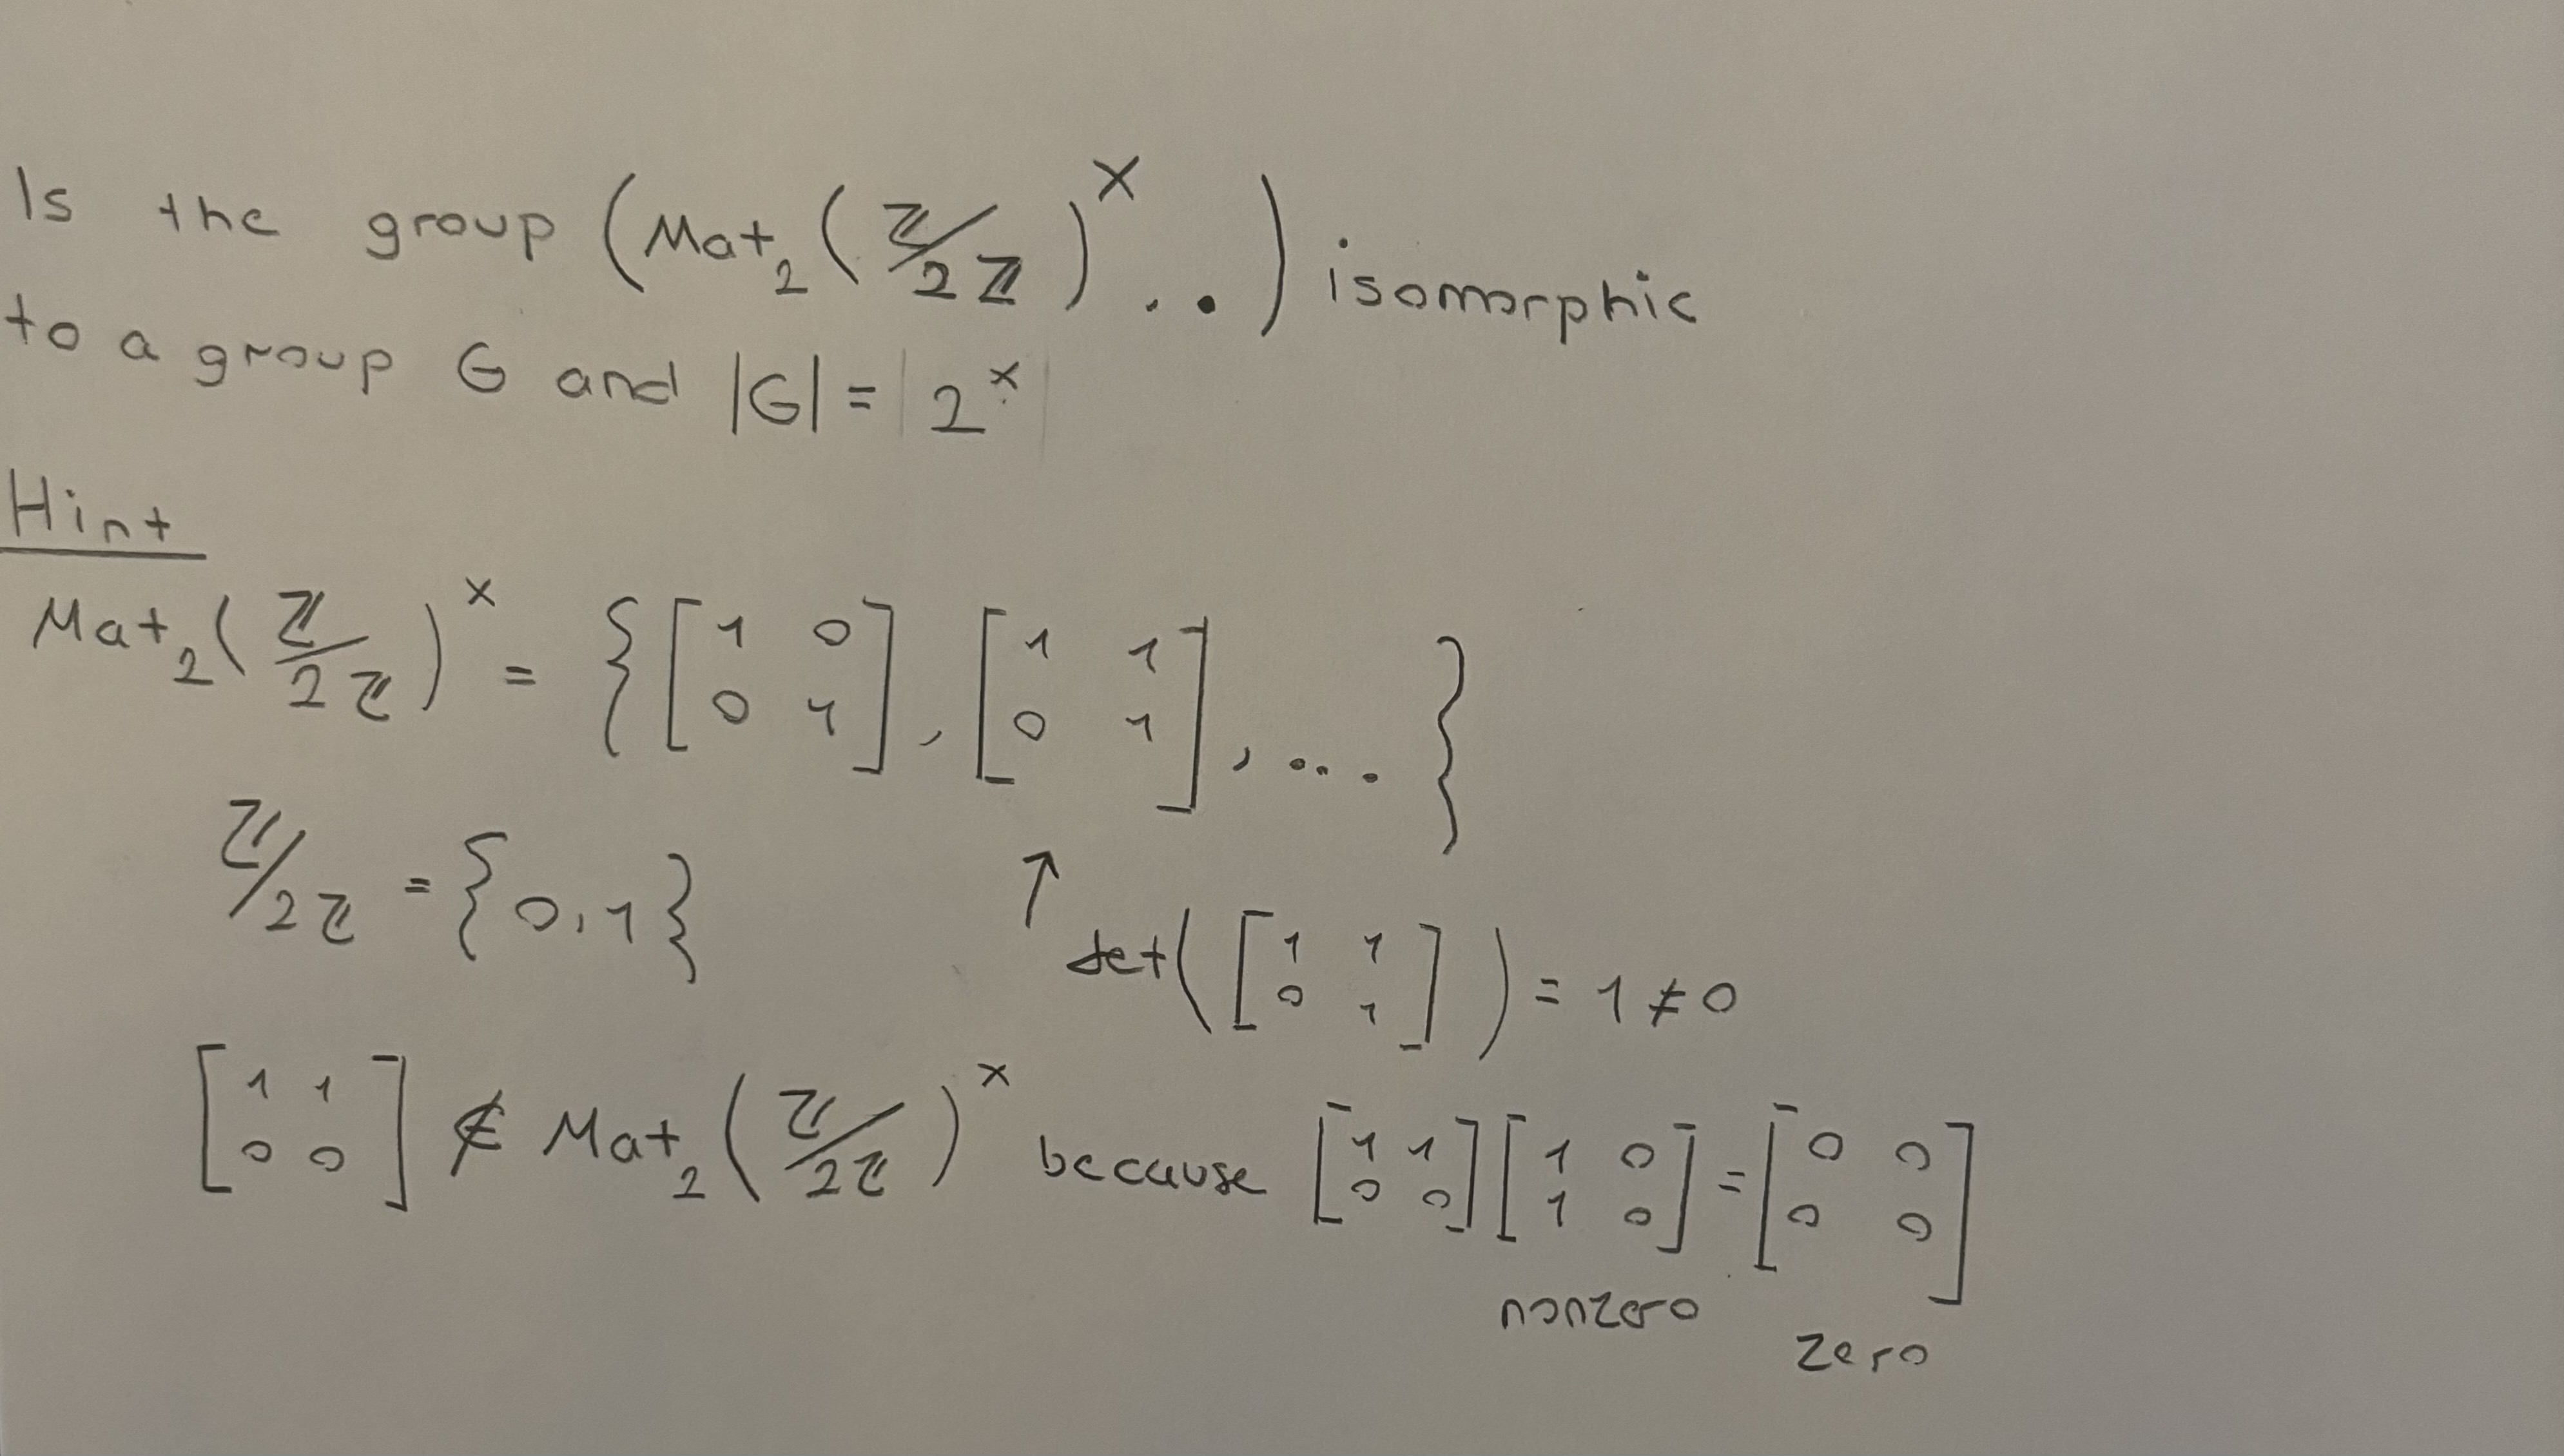 Is the group (Mat₂(ℤ/2ℤ)ˣ, ·) isomorphic
to a group G and |G| = 2ˣ
Hint
Mat₂(ℤ/2ℤ)ˣ = {[1 0; 0 1], [1 1; 0 1], ...}
ℤ/2ℤ = {0,1}
↑ det([1 1; 0 1]) = 1 ≠ 0
[1 1; 0 0] ∉ Mat₂(ℤ/2ℤ)ˣ because [1 1; 0 0][1 0; 1 0] = [0 0; 0 0]
nonzero
zero